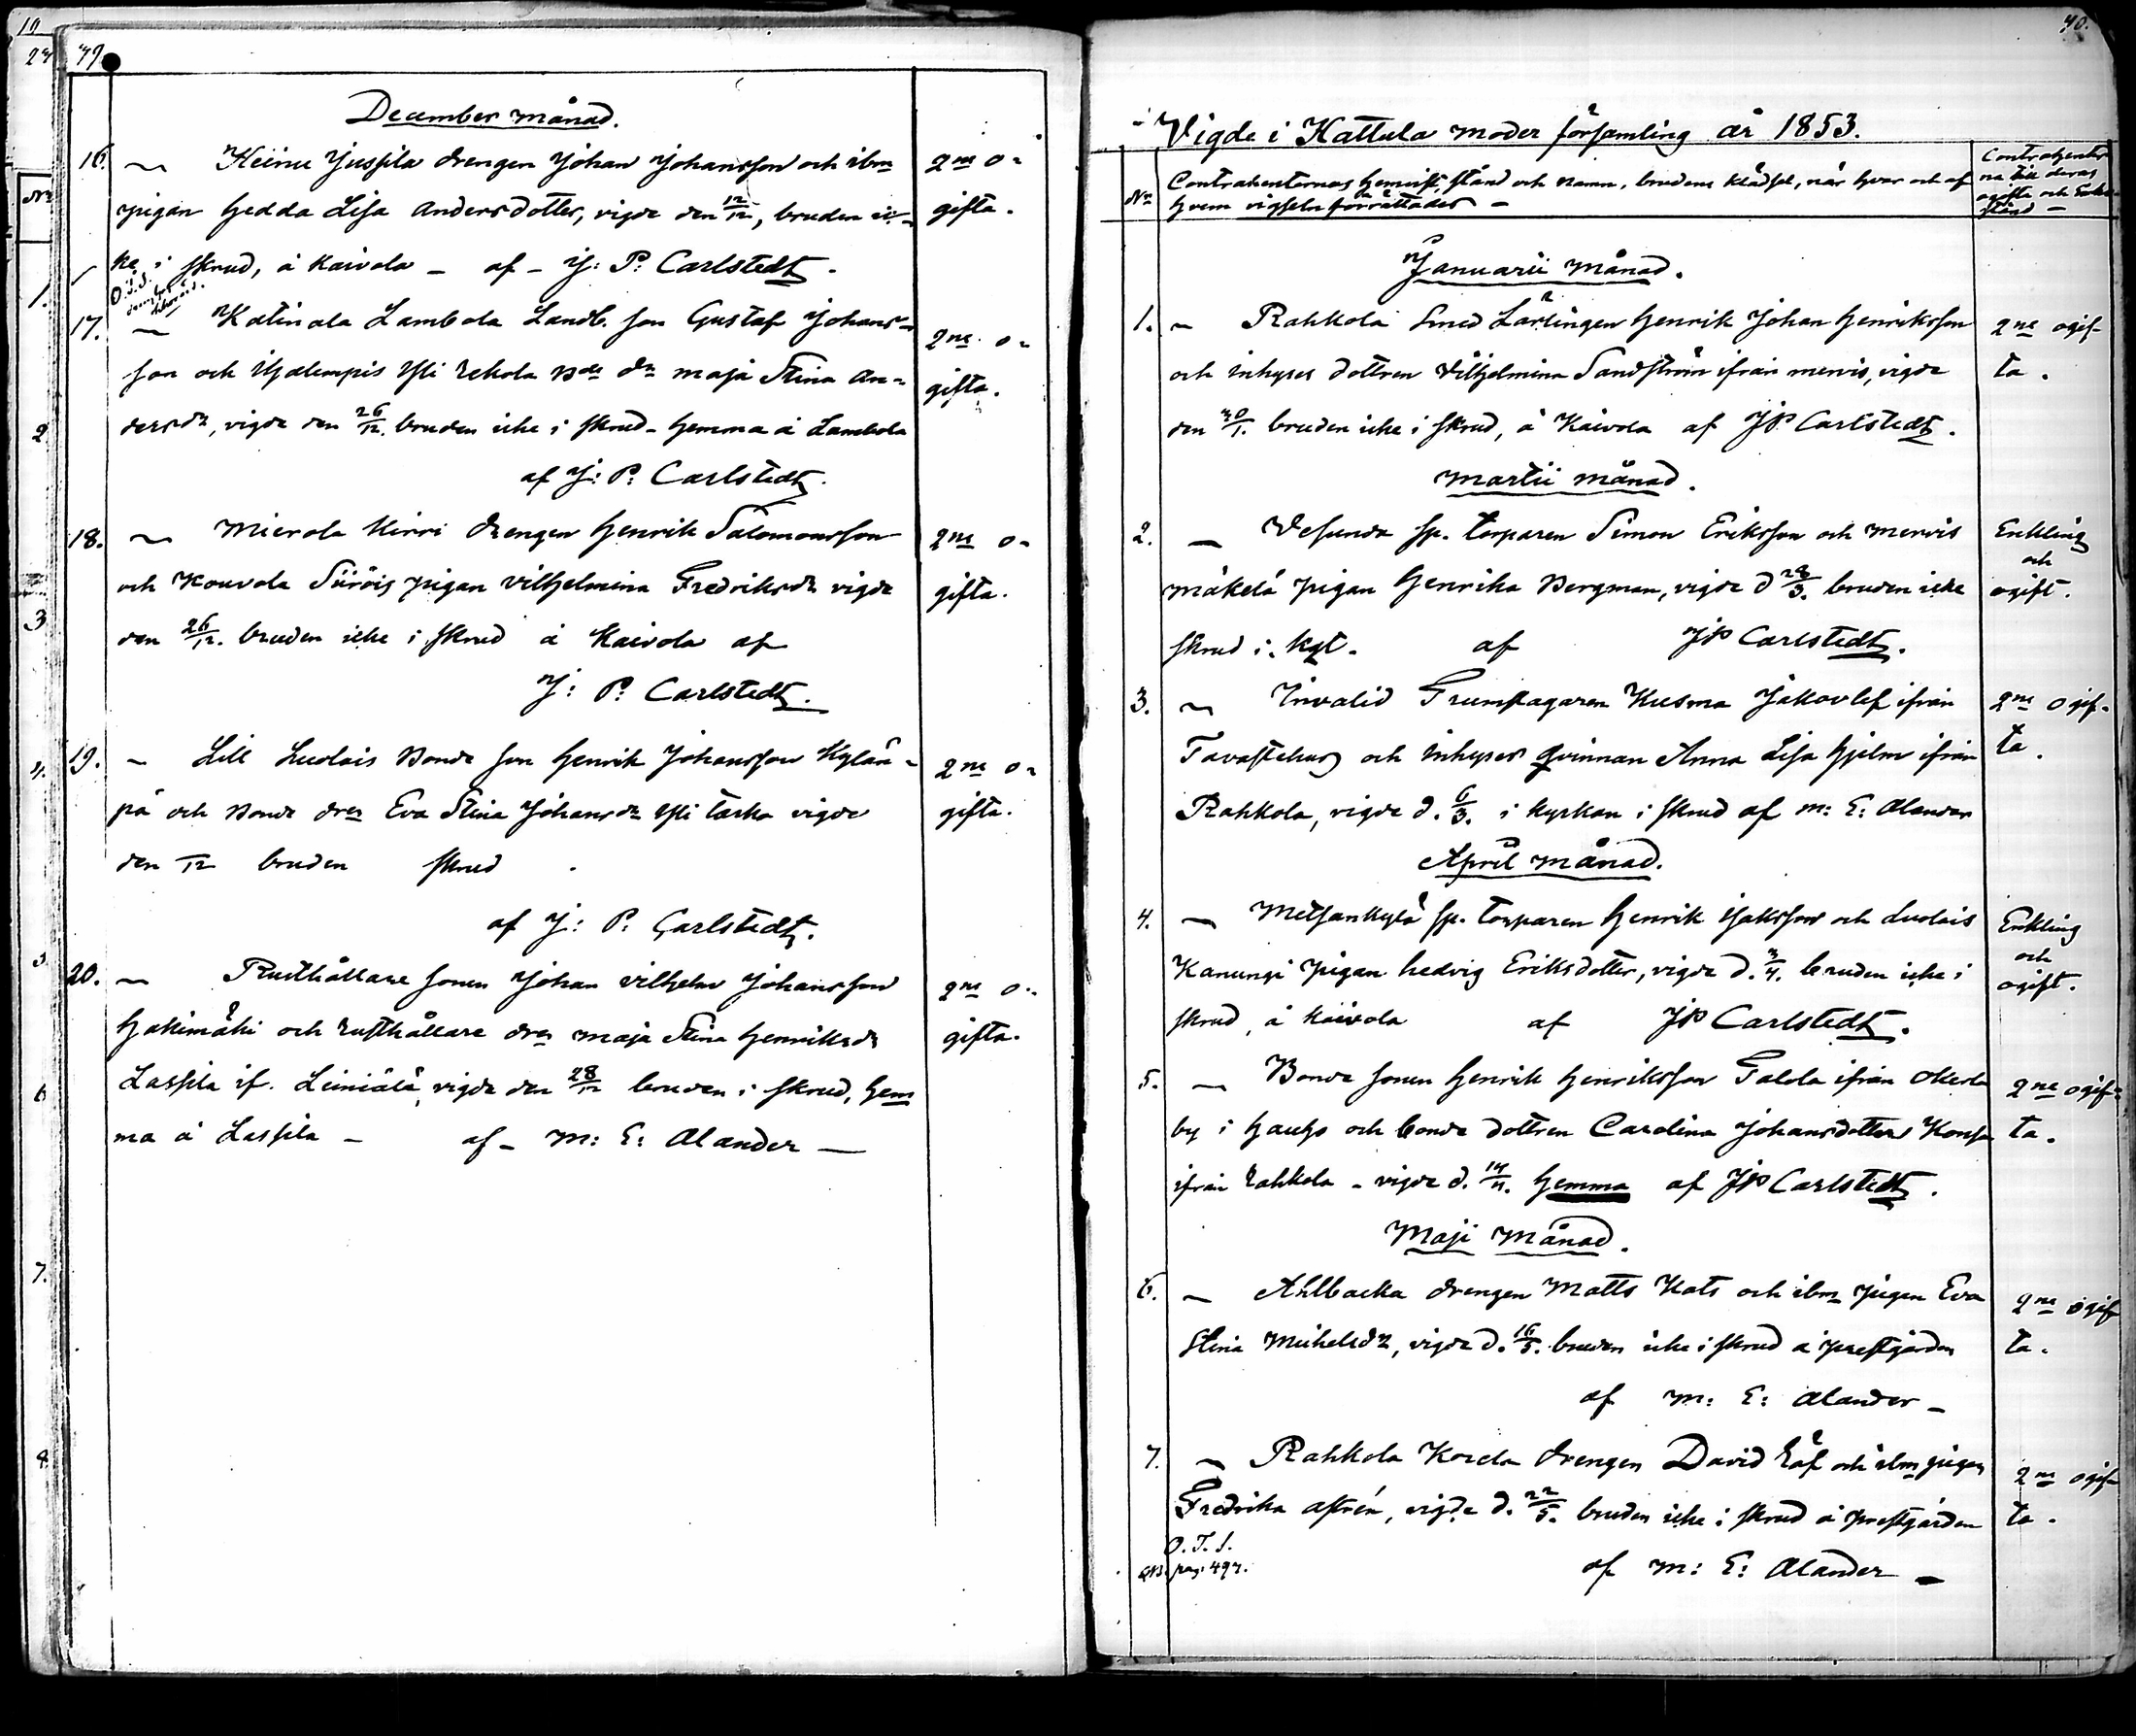 79.
December månad.
16. Heinu Jussila drengen Johan Johansson och ibm 2ne o-
pigan Hedda Lisa Andersdotter, vigde den 12/12, bruden ic- gifta.
ke i skrud, å Kaivola - af - J: P: Carlstedt.
O.T.S.
17. Katinala Lambola Landb. son Gustaf Johans- 2ne o-
son och Hjelempis Yli Rekola Bde dr Maja Stina An- gifta.
dersdr, vigde den 26/12. bruden icke i skrud - hemma å Lambola
af J: P: Carlstedt.
18. Mierola Hirvi drengen Henrik Salomonsson 2ne o-
och Kouvola Siiröis pigan Vilhelmina Fredriksdr vigde gifta.
den 26/12. bruden icke i skrud å Kaivola af
J: P: Carlstedt.
19. Lill Luolais Bonde son Henrik Johansson Kylän- 2ne o-
pä och Bonde drn Eva Stina Johansdr Yli Carka vigde gifta.
den /12 bruden skrud .
af J: P: Carlstedt.
20. Rusthållare sonen Johan Vilhelm Johansson 2ne o-
Hakimäki och rusthållare drn Maja Stina Henriksdr gifta.
Lassila if. Leiniälä, vigde den 28/12 bruden i skrud, hem
ma å Lassila - af - M: E: Alander
40.
Vigde i Hattula moder församling år 1853.
No Contrahenternas hemvist, stånd och namn, brudens klädsel, när hvar och af
hvem vigseln förrättades -
Contrahenter
na till deras
ogifta och Enke
stånd -
Januarii månad.
1. Rahkola Smed Lärlingen Henrik Johan Henriksson 2ne ogif-
och inhyses dottren Vilhelmina Sandström ifrån Mervis, vigde ta.
den 30/1. bruden icke i skrud, å Kaivola af JP Carlstedt.
Martii månad.
2. Vesunda sp. torparen Simon Eriksson och Mervis Enkling
och
Mäkelä pigan Henrika Bergman, vigde d 28/3. bruden icke ogift.
skrud i kgt. af JP Carlstedt.
3. Invalid Trumslagaren Kusma Jakovlef ifrån 2ne ogif-
Tavastehus och inhyses qvinnan Anna Lisa Hjelm ifrån ta.
Rahkola, vigde d. 6/3. i kyrkan i skrud af M: E: Alander
April månad.
4. Metsänkylä sp. torparen Henrik Isaksson och Luolais Enkling
och
Kanungi pigan Hedvig Eriksdotter, vigde d. 3/4. bruden icke i ogift.
skrud, å Kaivola af JP Carlstedt.
5. Bonde sonen Henrik Henriksson Talola ifrån Okerla 2ne ogif-
by i Hauho och bonde dottren Carolina Johansdotter Konsa ta.
ifrån Rahkola - vigde d. 14/4. hemma af JP Carlstedt.
Maji Månad.
6. Ahlbacka drengen Matts Kats och ibm pigan Eva 2ne ogif
Stina Michelsdr, vigde d. 16/5. bruden icke i skrud å prestgården ta.
af M: E: Alander -
7. Rahkola Korela drengen David Räf och ibm pigan 2ne ogif-
Fredrika Astrén, vigde d. 22/5. bruden icke i skrud å prestgården ta.
O. T. S.
pag: 497. af M: E: Alander -